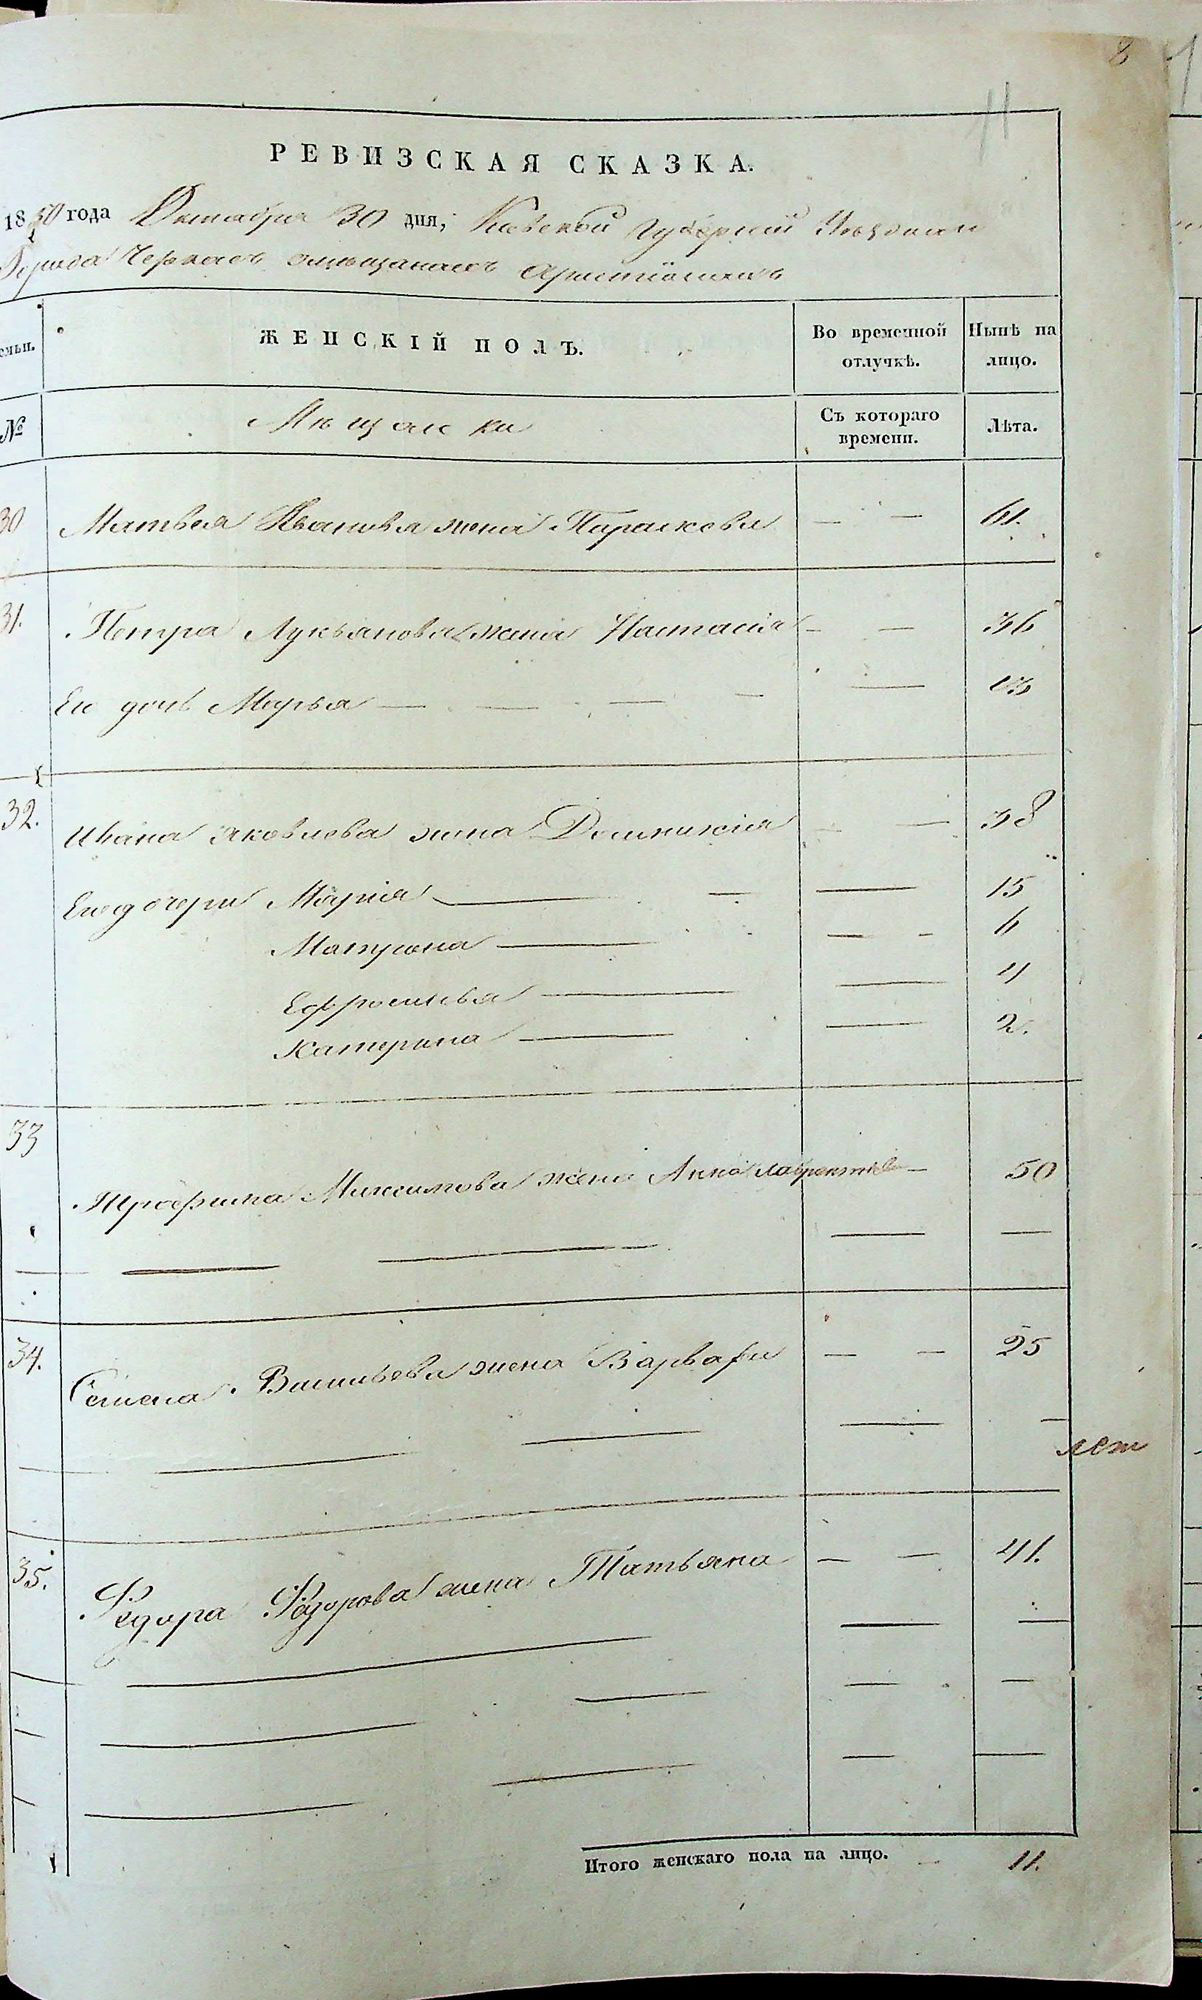 8
11
РЕВИЗСКАЯ СКАЗКА.
1850 года Октября 30 дня, Киевской Губернии Уезднаго
Города Черкасъ омещанахъ Христiянахъ
ЖЕНСКIЙ ПОЛЪ.
Во временной отлучкѣ.
Нынѣ на лицо.
№
Мещанки
Съ котораго времени.
Лѣта.
30 Матвея Иванова жена Параскева — — 61.
31. Петра Лукьянова жена Настасiя — — 36
Ее дочь Марья — — — — — 13
32. Ивана Яковлева жена Домникiя — — 38
Его дочери Марiя — — — 15
Матрона — — — 6
Ефросинья — — 4
Катерина — — 2.
33 Трофима Максимова жена Анна Лаврентiева — 50
34. Семена Васильева жена Варвара — — 25
лет
35. Федора Федорова жена Татьяна — — 41.
Итого женскаго пола на лицо. — 11.